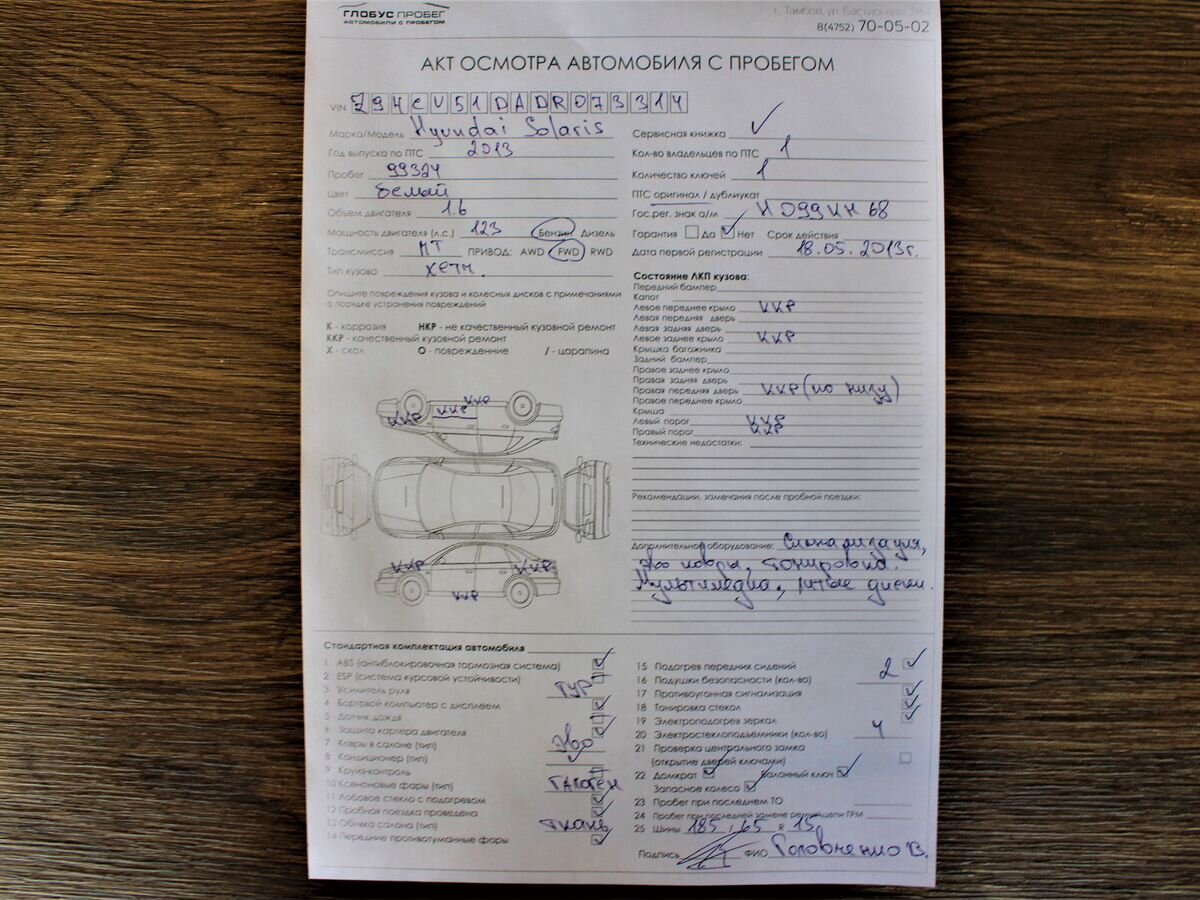 ГЛОБУС ПРОБЕГ
АВТОМОБИЛИ С ПРОБЕГОМ
г. Тамбов, ул. Бастионная, 26Л
8(4752) 70-05-02
АКТ ОСМОТРА АВТОМОБИЛЯ С ПРОБЕГОМ
VIN Z94CU51DADR073314
Марка/Модель Hyundai Solaris
Год выпуска по ПТС 2013
Пробег 99324
Цвет белый
Объем двигателя 1.6
Мощность двигателя (л.с.) 123 Бензин Дизель
Трансмиссия МТ ПРИВОД: AWD FWD RWD
Тип кузова хетч.
Опишите повреждения кузова и колесных дисков с примечаниями
о порядке устранения повреждений
К - коррозия НКР - не качественный кузовной ремонт
ККР - качественный кузовной ремонт
Х - скол О - повреждение / - царапина
Сервисная книжка ✓
Кол-во владельцев по ПТС 1
Количество ключей 1
ПТС оригинал / дубликат
Гос.рег. знак а/м Н099КН 68
Гарантия Да ✓ Нет Срок действия
Дата первой регистрации 18.05.2013г.
Состояние ЛКП кузова:
Передний бампер
Капот
Левое переднее крыло ККР
Левая передняя дверь
Левая задняя дверь
Левое заднее крыло ККР
Крышка багажника
Задний бампер
Правое заднее крыло
Правая задняя дверь
Правая передняя дверь ККР (по низу)
Правое переднее крыло
Крыша
Левый порог ККР
Правый порог ККР
Технические недостатки:
Рекомендации, замечания после пробной поездки:
Дополнительное оборудование: Сигнализация,
эво ковры, тонировка.
Мультимедиа, литые диски.
ККР ККР ККР
ККР ККР
ККР
Стандартная комплектация автомобиля
1 ABS (антиблокировочная тормозная система) ✓
2 ESP (система курсовой устойчивости)
3 Усилитель руля ГУР
4 Бортовой компьютер с дисплеем ✓
5 Датчик дождя
6 Защита картера двигателя ✓
7 Ковры в салоне (тип) Эво
8 Кондиционер (тип) ✓
9 Круиз-контроль
10 Ксеноновые фары (тип) ГАЛОГЕН
11 Лобовое стекло с подогревом ✓
12 Пробная поездка проведена ✓
13 Обивка салона (тип) Ткань
14 Передние противотуманные фары ✓
15 Подогрев передних сидений ✓
16 Подушки безопасности (кол-во) 2
17 Противоугонная сигнализация ✓
18 Тонировка стекол ✓
19 Электроподогрев зеркал ✓
20 Электростеклоподъемники (кол-во) 4
21 Проверка центрального замка
(открытие дверей ключами)
22 Домкрат ✓ Балонный ключ ✓
Запасное колесо ✓
23 Пробег при последнем ТО
24 Пробег при последней замене ремня/цепи ГРМ
25 Шины 185, 65, 15
Подпись ФИО